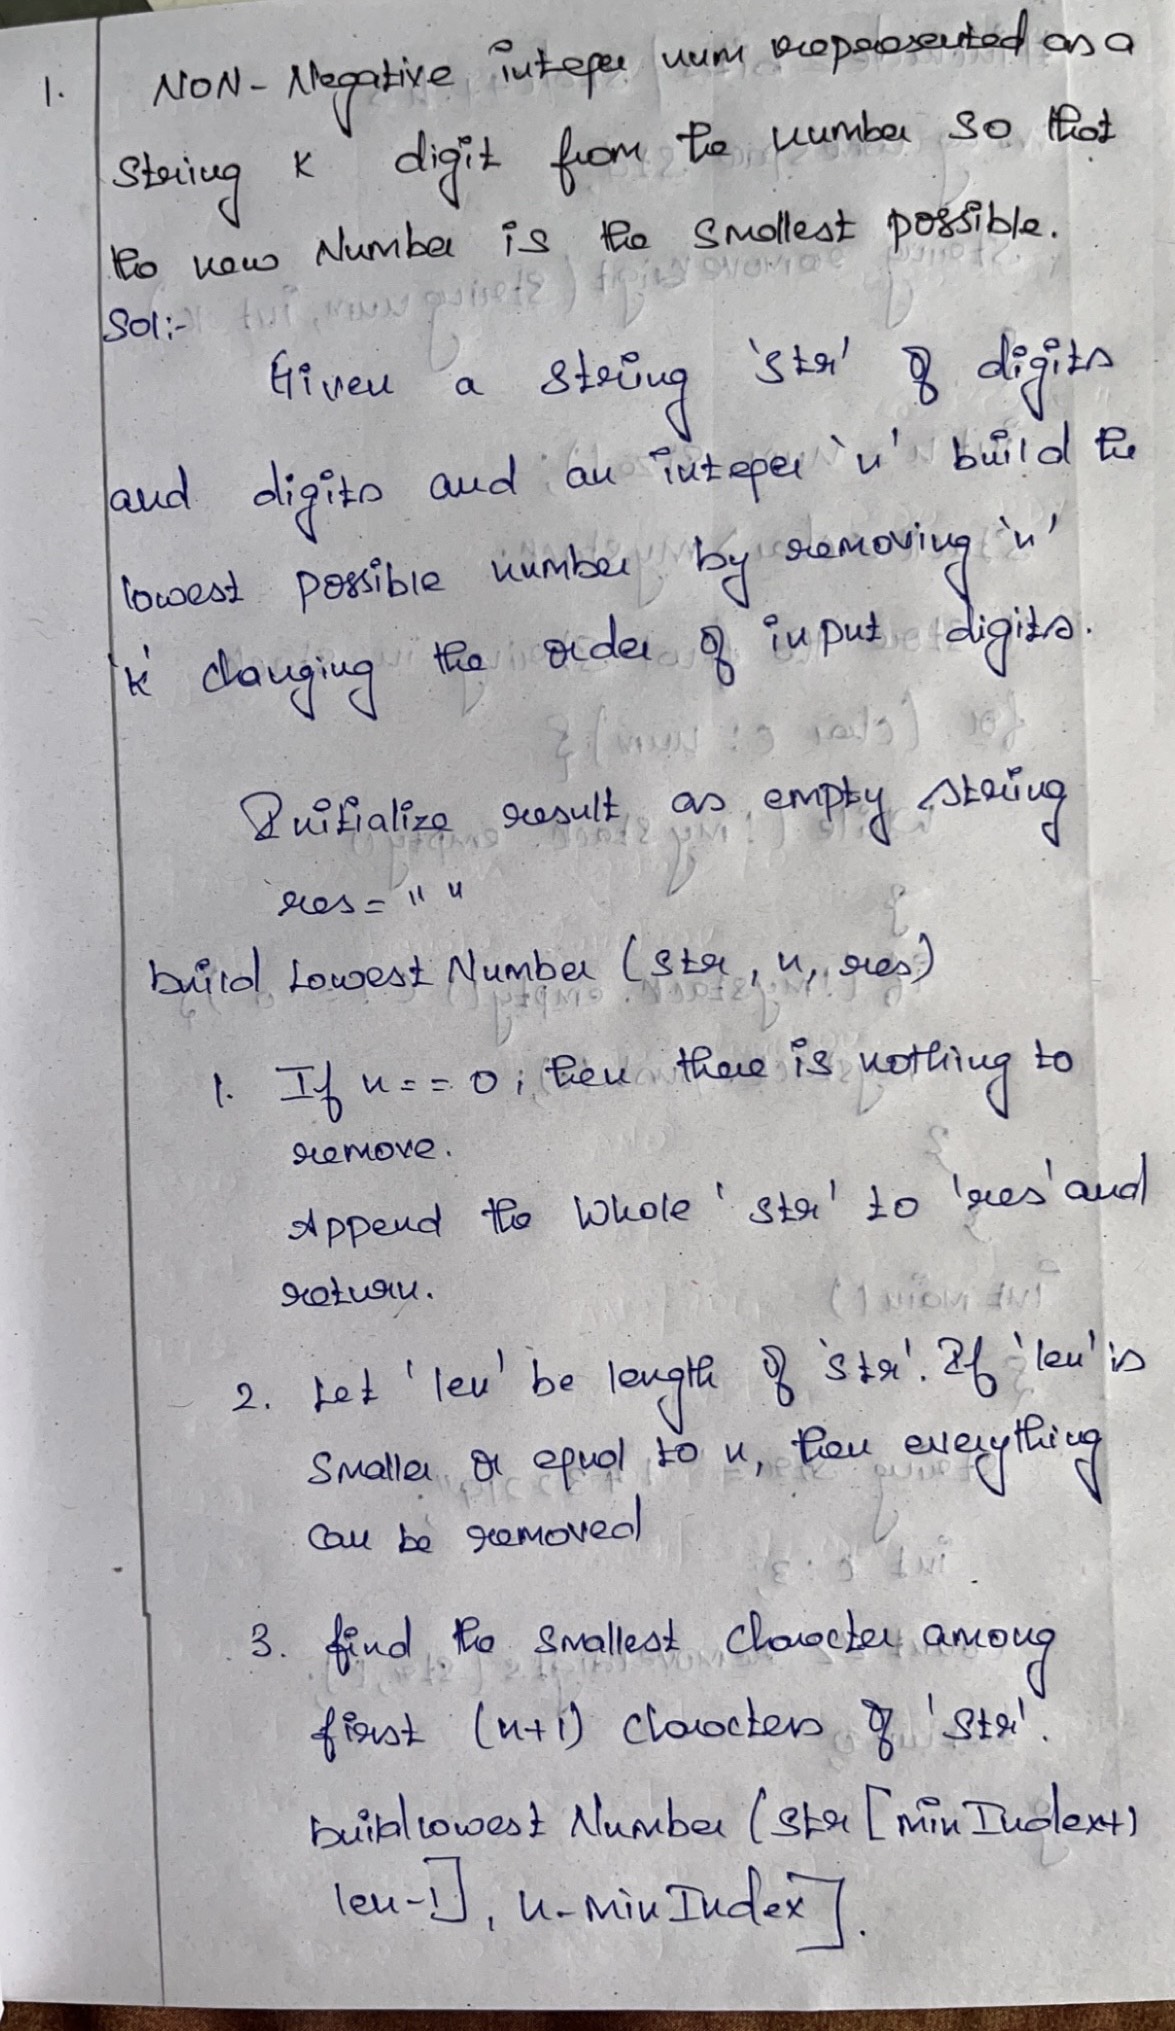 1. NON-Negative integer num represented as a
String K digit from the number so that
the new Number is the smallest possible.
Sol:-
Given a string 'str' of digits
and digits and an integer 'n' build the
lowest possible number by removing 'n'
'k' changing the order of input digits.
Initialize result as empty string
res = " "
build Lowest Number (str, n, res)
1. If n == 0; then there is nothing to
remove.
Append the whole 'str' to 'res' and
return.
2. Let 'len' be length of 'str'. If 'len' is
smaller or equal to n, then everything
can be removed
3. find the smallest character among
first (n+1) characters of 'str'.
buildlowest Number (str [minIndex+1
len-1], n-minIndex].